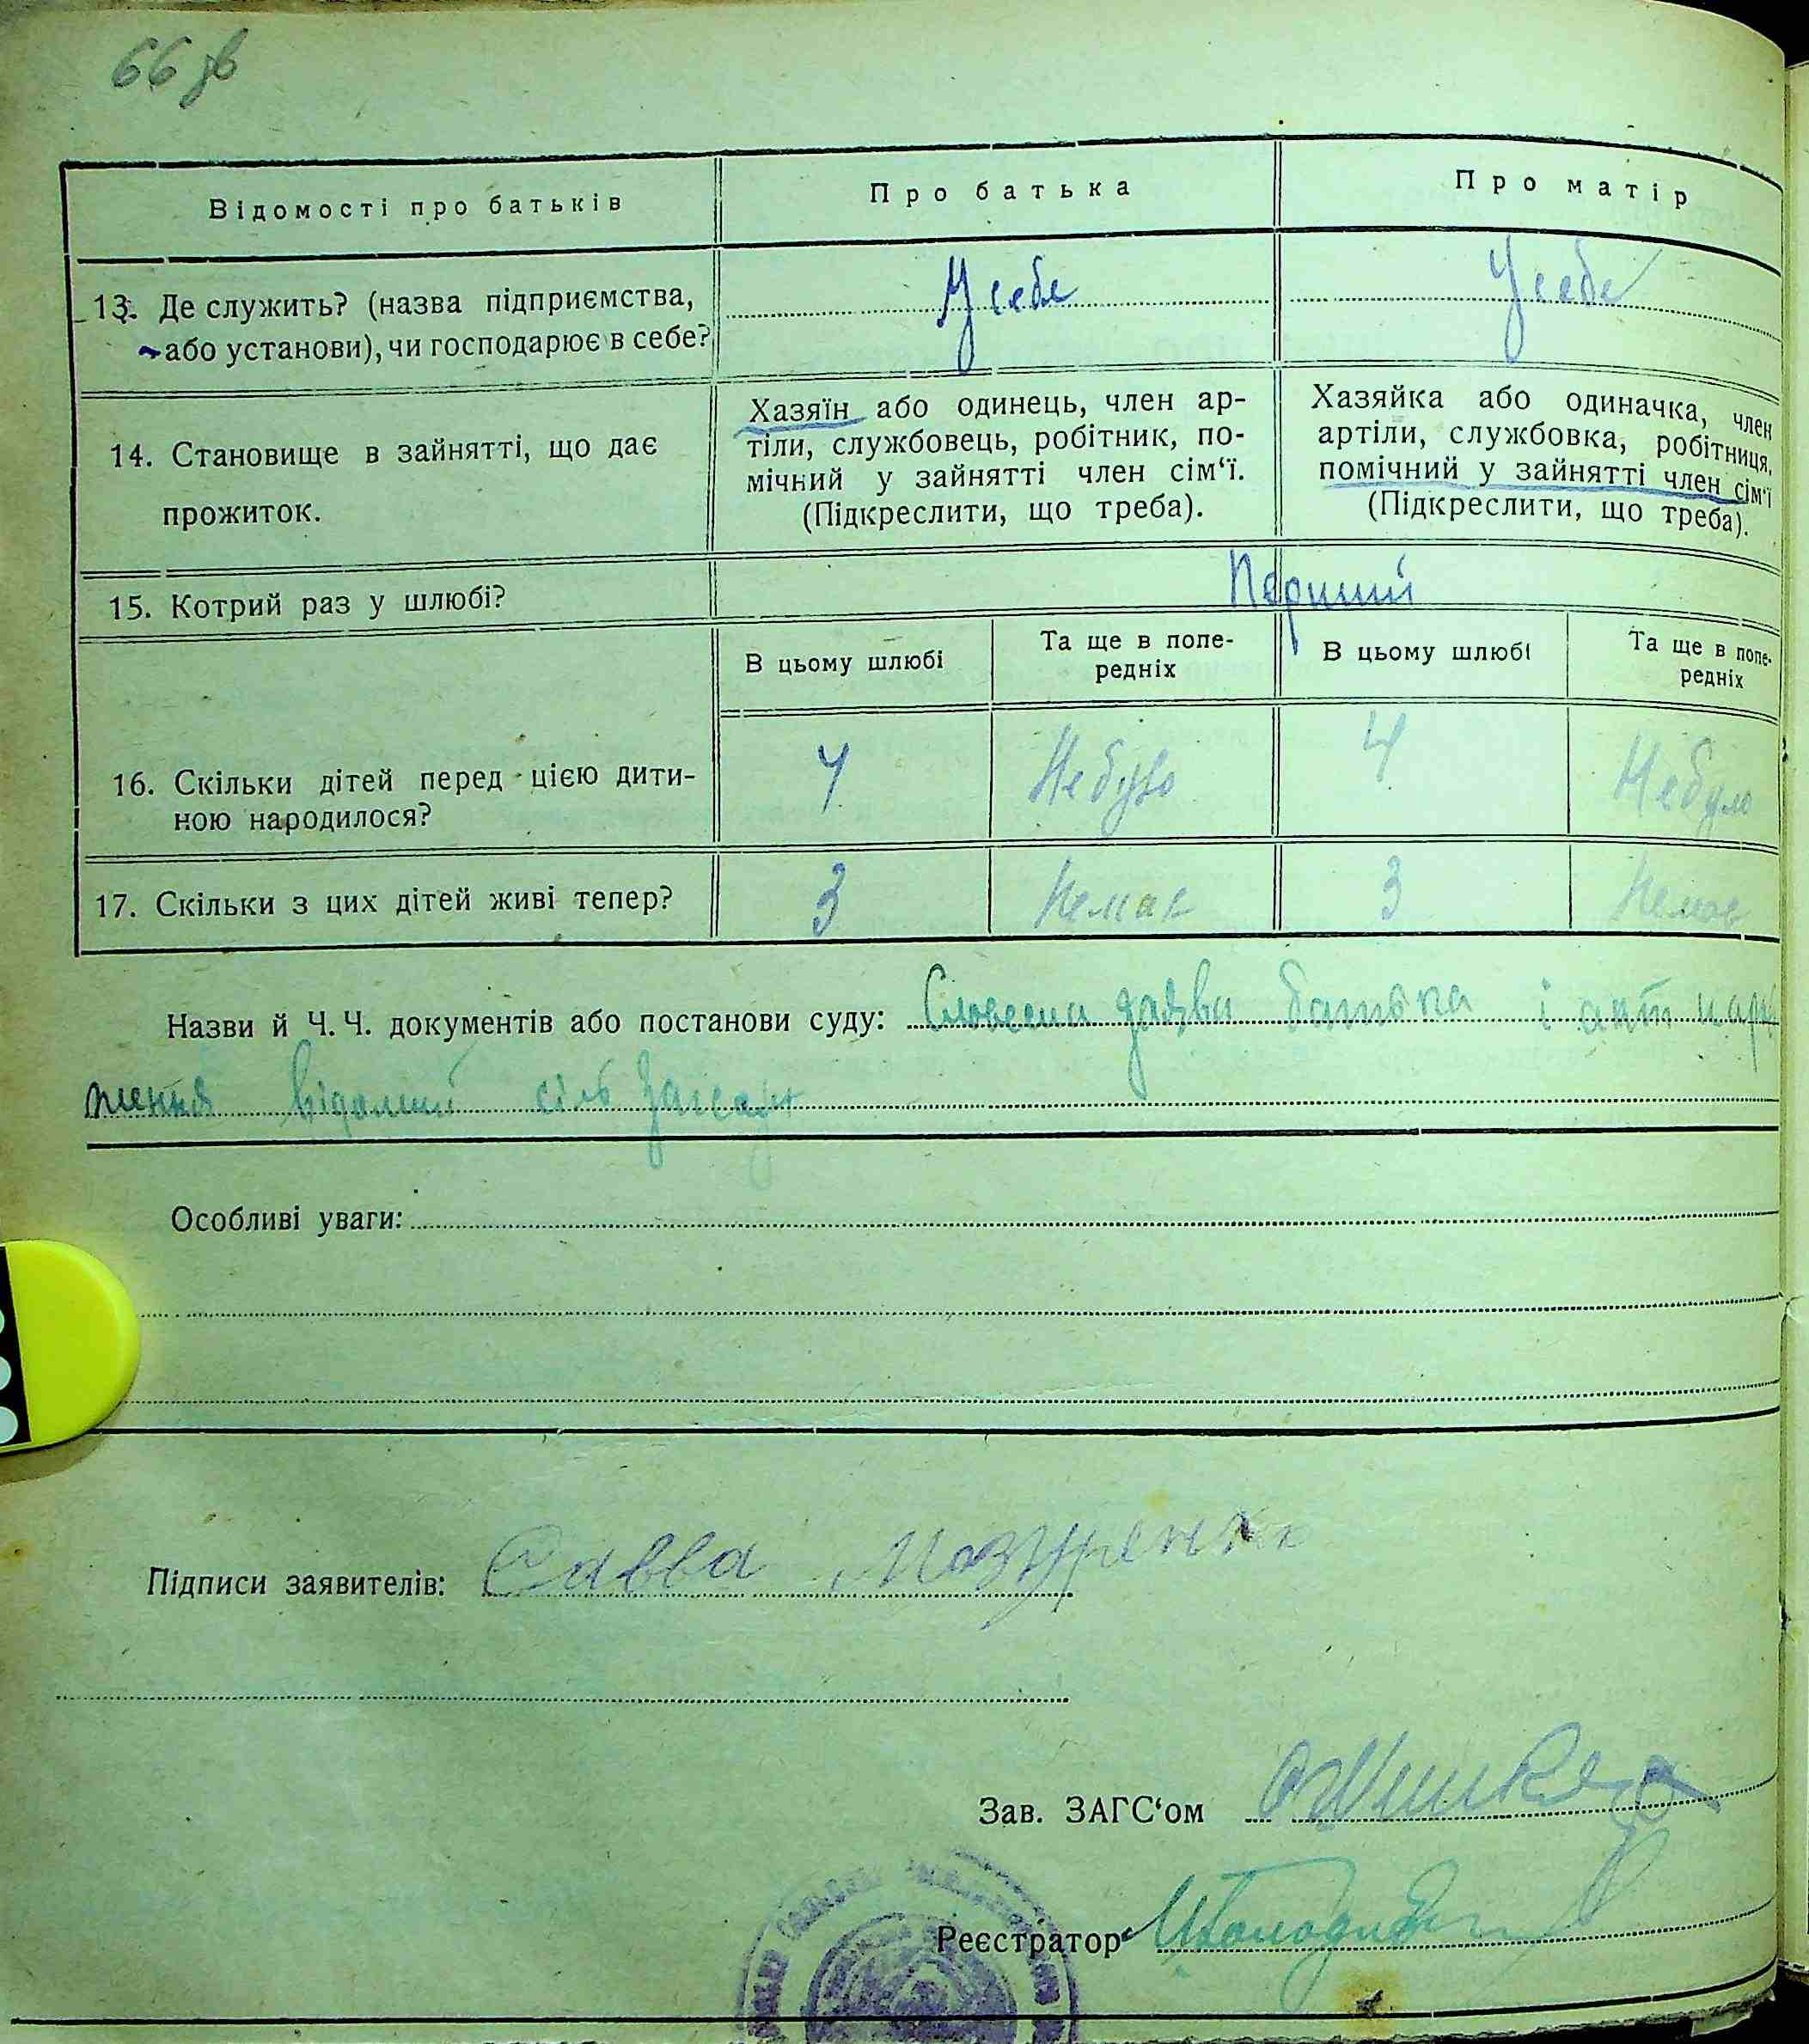 66 зв
Відомості про батьків
Про батька
Про матір
13. Де служить? (назва підприємства,
або установи), чи господарює в себе?
У себе
У себе
14. Становище в зайнятті, що дає
прожиток.
Хазяїн або одинець, член ар-
тіли, службовець, робітник, по-
мічний у зайнятті член сім‘ї.
(Підкреслити, що треба).
Хазяйка або одиначка, член
артіли, службовка, робітниця,
помічний у зайнятті член сім‘ї
(Підкреслити, що треба).
15. Котрий раз у шлюбі?
Перший
В цьому шлюбі
Та ще в попе-
редніх
В цьому шлюбі
Та ще в попе-
редніх
16. Скільки дітей перед цією дити-
ною народилося?
4
Не було
4
Не було
17. Скільки з цих дітей живі тепер?
3
Немає
3
Немає
Назви й Ч. Ч. документів або постанови суду: Словесна заява батька і акт народ
ження відомий сіль Загсазі
Особливі уваги:
Підписи заявителів: Савва Мазуренко
Зав. ЗАГС‘ом
Реєстратор